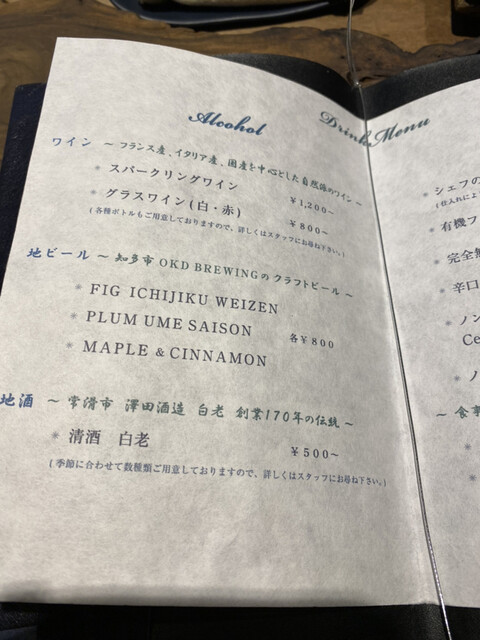 Alcohol
ワイン ～ フランス産、イタリア産、国産を中心とした自然派のワイン ～
スパークリングワイン ¥1,200~
グラスワイン(白・赤) ¥800~
(各種ボトルもご用意しておりますので、詳しくはスタッフにお尋ね下さい。)
地ビール ～ 知多市 OKD BREWINGのクラフトビール ～
FIG ICHIJIKU WEIZEN
PLUM UME SAISON 各¥800
MAPLE & CINNAMON
地酒 ～ 常滑市 澤田酒造 白老 創業170年の伝統 ～
清酒 白老 ¥500~
(季節に合わせて数種類ご用意しておりますので、詳しくはスタッフにお尋ね下さい。)
Drink Menu
シェフの
(仕入れによ
有機フ
完全無
辛口
ノン
Ce
ノ
～ 食事